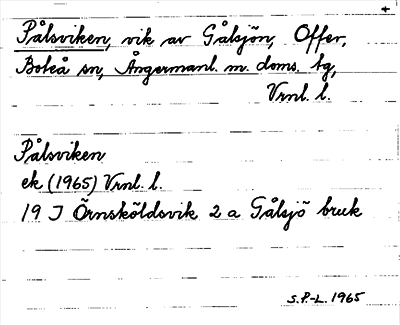 Pålsviken, vik av Gålsjön, Offer,
Boteå sn, Ångermanl. m. doms. tg,
Vrnl. l.
Pålsviken
ek (1965) Vrnl. l.
19 J Örnsköldsvik 2 a Gålsjö bruk
S.P-L. 1965